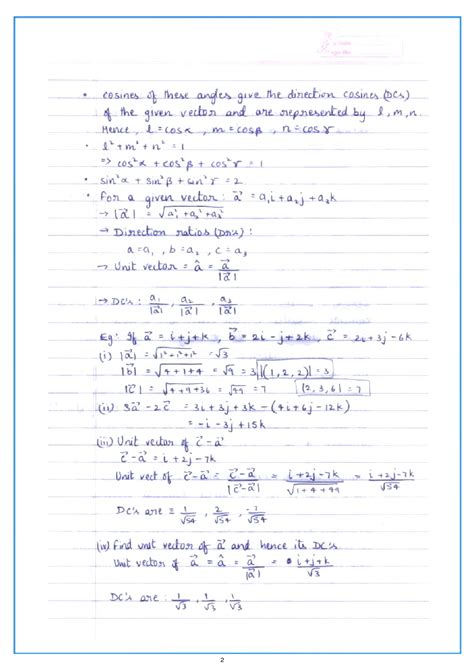 • cosines of these angles give the direction cosines (DCs)
of the given vector and are represented by l, m, n.
Hence, l = cosα , m = cosβ , n = cosγ
• l² + m² + n² = 1
=> cos²α + cos²β + cos²γ = 1
• sin²α + sin²β + sin²γ = 2
• For a given vector: a⃗ = a₁i + a₂j + a₃k
→ |a⃗| = √(a₁² + a₂² + a₃²)
→ Direction ratios (DR's) :
a = a₁ , b = a₂ , c = a₃
→ Unit vector = â = a⃗/|a⃗|
→ DC's : a₁/|a⃗| , a₂/|a⃗| , a₃/|a⃗|
Eg: If a⃗ = i+j+k , b⃗ = 2i-j+2k , c⃗ = 2i+3j-6k
(i) |a⃗| = √(1²+1²+1²) = √3
|b⃗| = √(4+1+4) = √9 = 3 |(1,2,2)| = 3
|c⃗| = √(4+9+36) = √49 = 7 |2,3,6| = 7
(ii) 3a⃗ - 2c⃗ = 3i + 3j + 3k - (4i + 6j - 12k)
= -i - 3j + 15k
(iii) Unit vector of c⃗ - a⃗
c⃗ - a⃗ = i + 2j - 7k
Unit vect of c⃗-a⃗ = (c⃗-a⃗)/|c⃗-a⃗| = (i+2j-7k)/√(1+4+49) = (i+2j-7k)/√54
DC's are = 1/√54 , 2/√54 , -7/√54
(iv) Find unit vector of a⃗ and hence its DC's.
Unit vector of a⃗ = â = a⃗/|a⃗| = (i+j+k)/√3
DC's are : 1/√3 , 1/√3 , 1/√3
2